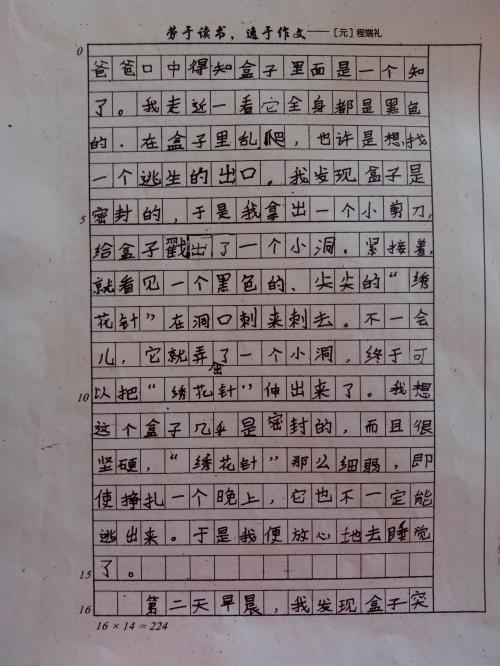 劳于读书，逸于作文——［元］程端礼
0
爸爸口中得知盒子里面是一个知
了。我走近一看它全身都是黑色
的，在盒子里乱爬，也许是想找
一个逃生的出口。我发现盒子是
5 密封的，于是我拿出一个小剪刀，
给盒子戳出了一个小洞。紧接着，
就看见一个黑色的、尖尖的“绣
花针”在洞口刺来刺去。不一会
儿，它就弄出了一个小洞，终于可
10 以把“绣花针”伸出来了。我想
这个盒子几乎是密封的，而且很
坚硬，“绣花针”那么细弱，即
使挣扎一个晚上，它也不一定能
逃出来。于是我便放心地去睡觉
15 了。
16 第二天早晨，我发现盒子突
16×14=224